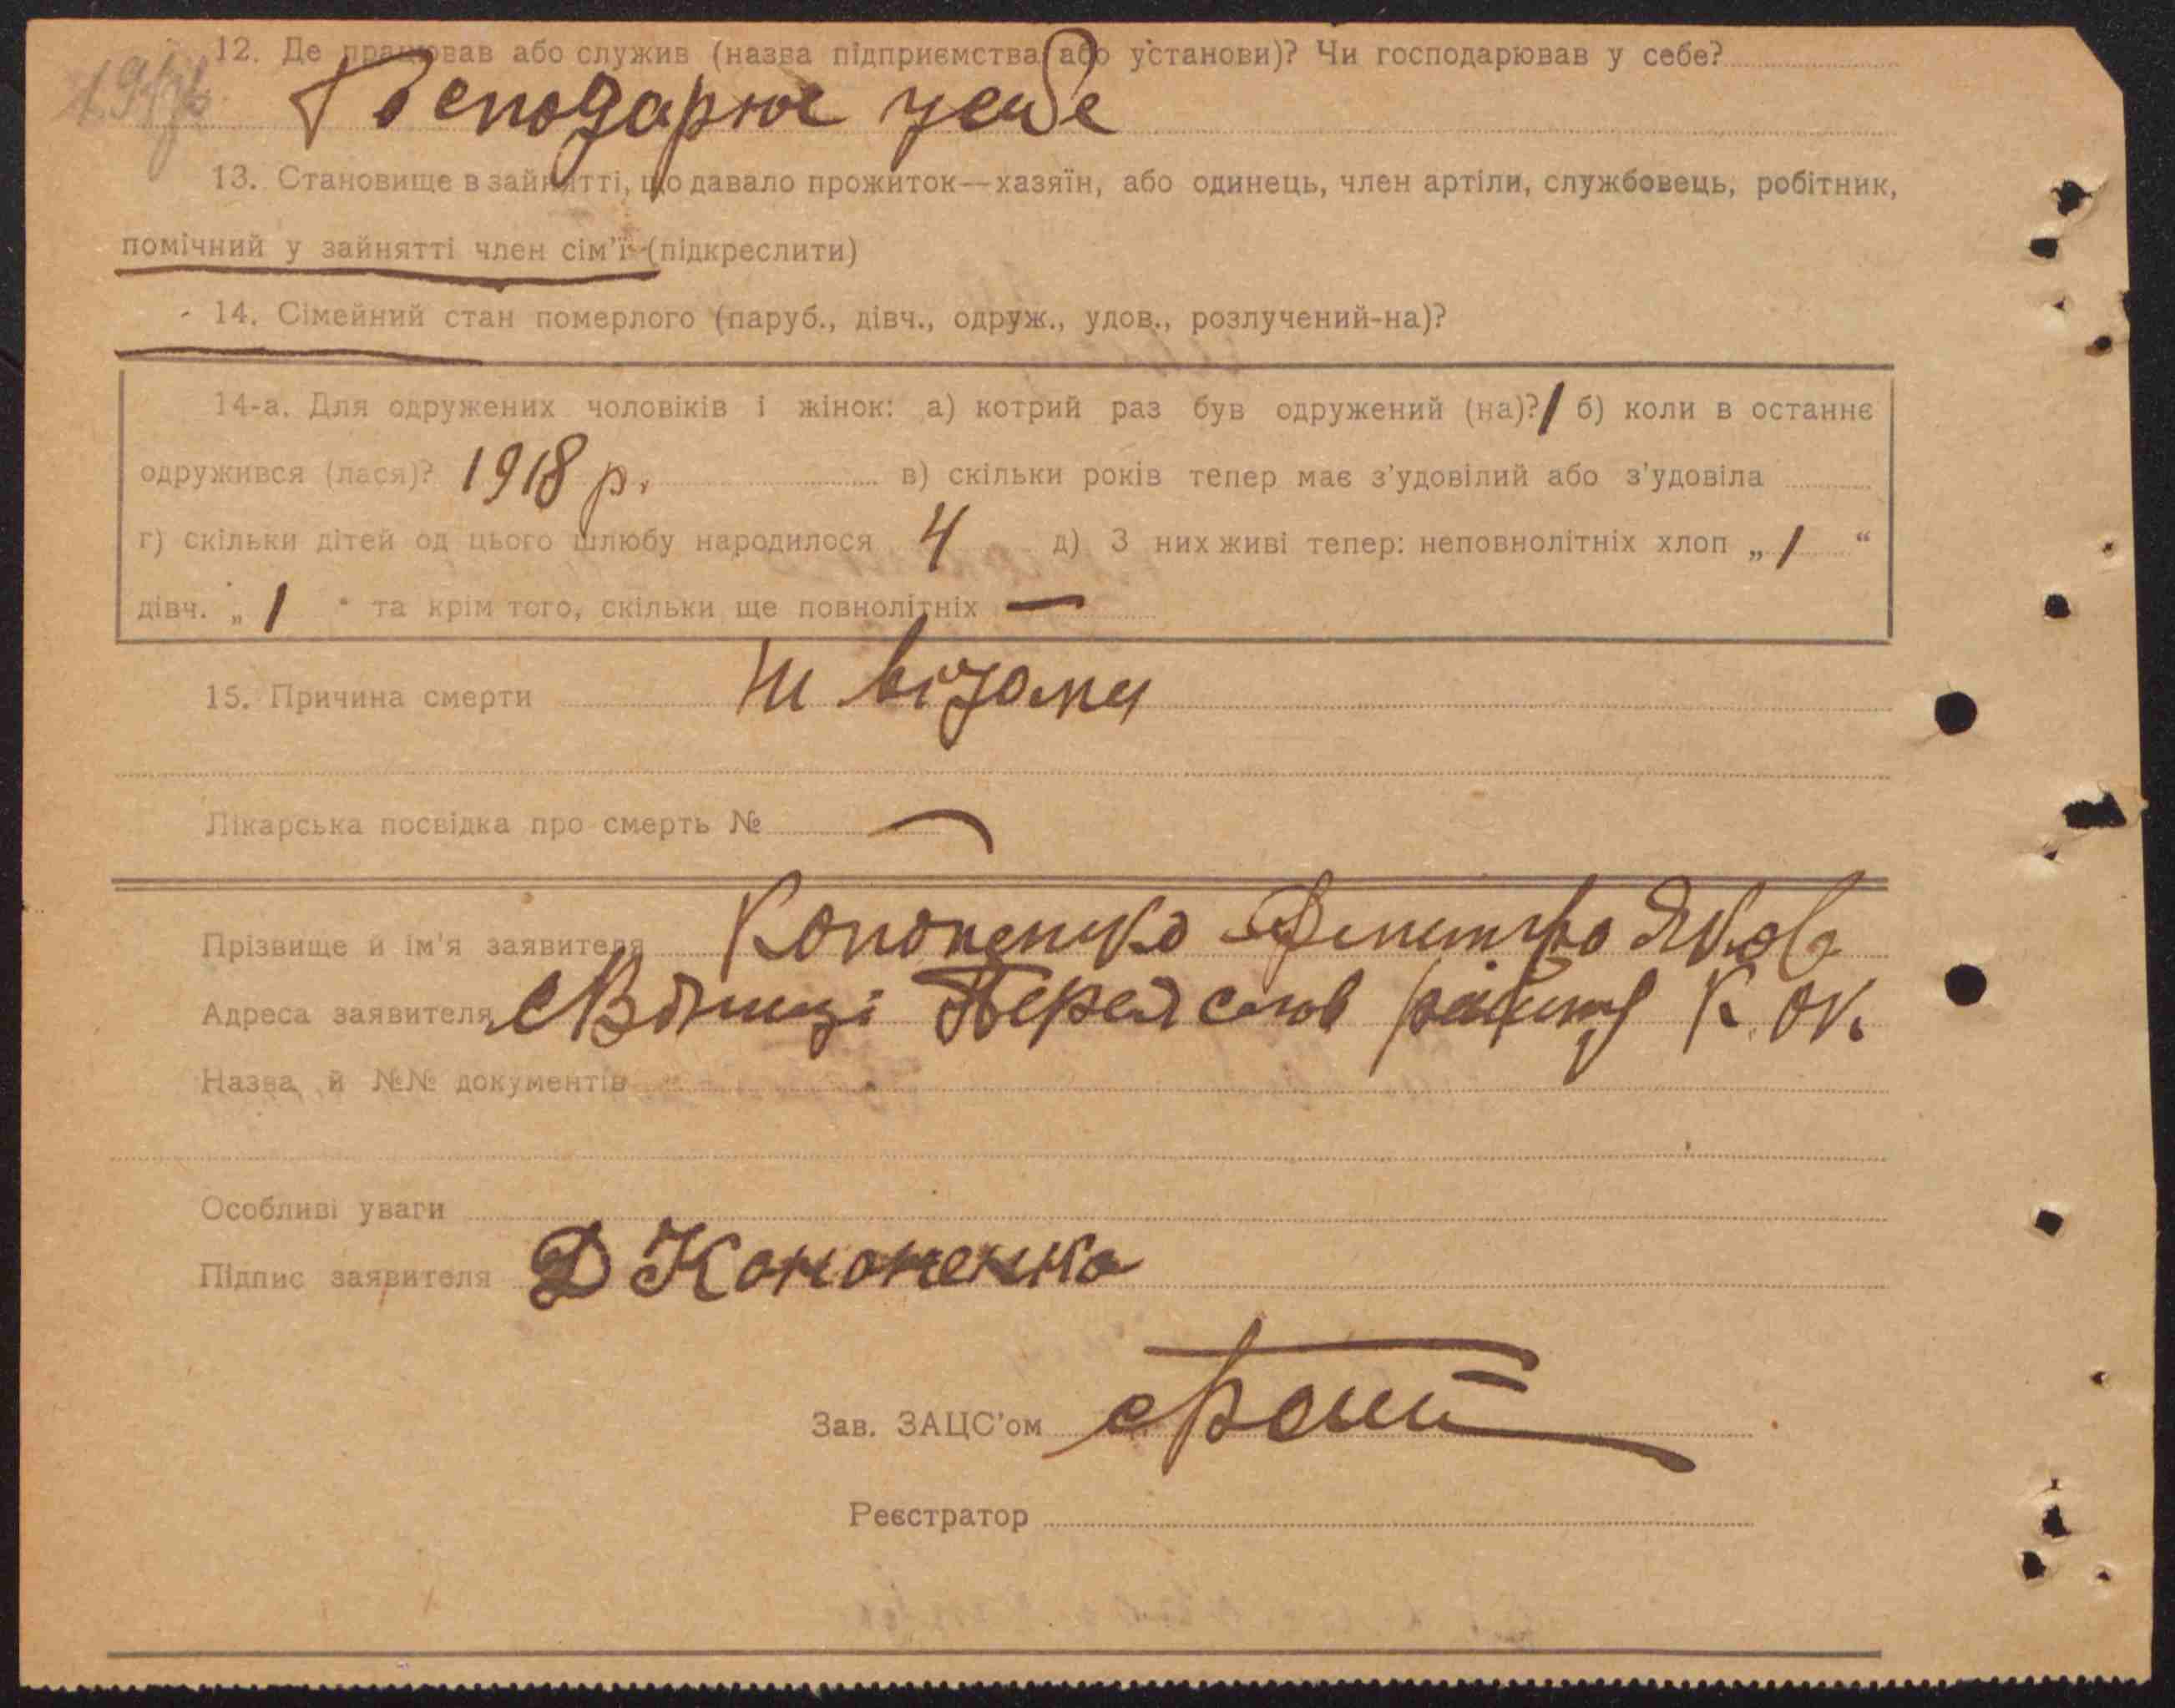 12. Де працював або служив (назва підприємства або установи)? Чи господарював у себе?
Господарює у себе
13. Становище в зайнятті, що давало прожиток—хазяїн, або одинець, член артіли, службовець, робітник,
помічний у зайнятті член сім'ї (підкреслити)
14. Сімейний стан померлого (паруб., дівч., одруж., удов., розлучений-на)?
14-а. Для одружених чоловіків і жінок: а) котрий раз був одружений (на)? 1 б) коли в останнє
одружився (лася)? 1918 р. в) скільки років тепер має з'удовілий або з'удовіла
г) скільки дітей од цього шлюбу народилося 4 д) З них живі тепер: неповнолітніх хлоп „ 1 “
дівч. „ 1 “ та крім того, скільки ще повнолітніх —
15. Причина смерти Ні відома
Лікарська посвідка про смерть № —
Прізвище й ім'я заявителя Кононенко Дмитро Яков
Адреса заявителя Переяслов району К. ок.
Назва й №№ документів
Особливі уваги
Підпис заявителя Д Кононенко
Зав. ЗАЦС'ом
Реєстратор